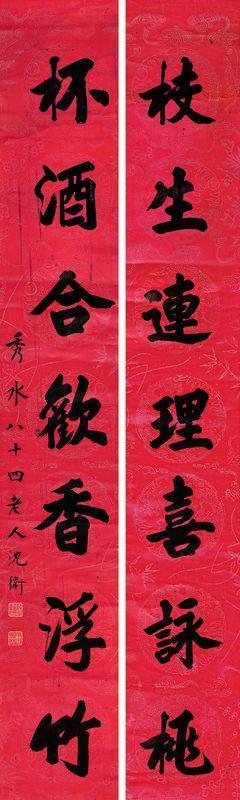 枝生連理喜詠桃
杯酒合歡香浮竹
秀水八十四老人沈衛